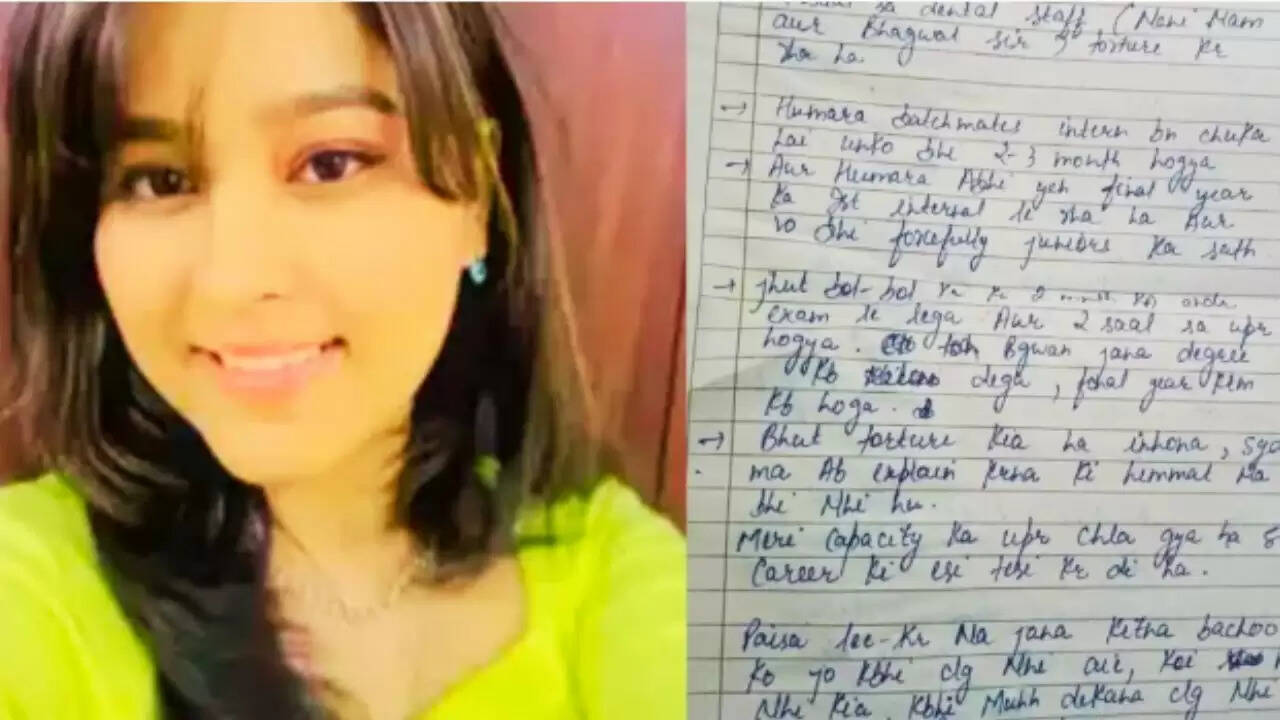 sa dental staff (
aur Bhagwat sir) torture kr
rha ha
→ Humara batchmates intern bn chuka
hai unko bhi 2-3 month hogya
→ Aur Humara Abhi yeh final year
ka Ist internal le rha ha Aur
vo bhi forcefully juniors ka sath
→ jhut bol-bol ka
exam le lega Aur 2 saal sa upr
hogya. Bgwan jana degree
kb dega, final year
kb hoga.
→ Bhut torture kia ha inhona,
ma Ab explain krna ki himmat
bhi Nhi hu.
Meri capacity ka upr chla gya ha
Career ki esi tesi kr di ha.
Paisa lee-kr Na jana kitna bachoo
ko jo kbhi clg Nhi aie, koi
Nhi kia, kbhi Muhh dekana clg Nhi